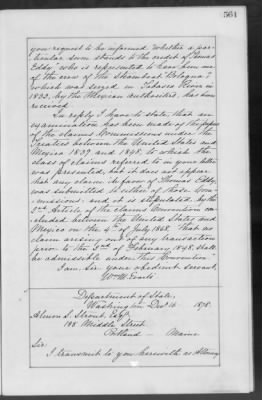 564
your request to be informed whether a par-
ticular sum stands to the credit of Thomas
Eddy, who is represented to have been one
of the crew of the Steamboat Bologna,
which was seized in Tabasco River in
1832, by the Mexican authorities, has been
received.
In reply I have to state, that an
examination has been made of the papers
of the claims Commissions under the
Treaties between the United States and
Mexico 1839 and 1868, to which the
class of claims referred to in your letter
was presented, but it does not appear
that any claim in favor of Thomas Eddy,
was submitted to either of those Com-
missions: and it is stipulated by the
2nd Article of the claims Convention con-
cluded between the United States and
Mexico on the 4th of July 1868 "that no
claim arising out of any transaction
prior to the 2nd of February, 1848, shall
be admissible under this Convention"
I am, Sir, your obedient servant,
Wm M. Evarts.
Department of State,
Washington Dec 16 1878.
Almon S. Strout, Esqr
188 Middle Street
Portland — Maine
Sir:
I transmit to you herewith as Attorney